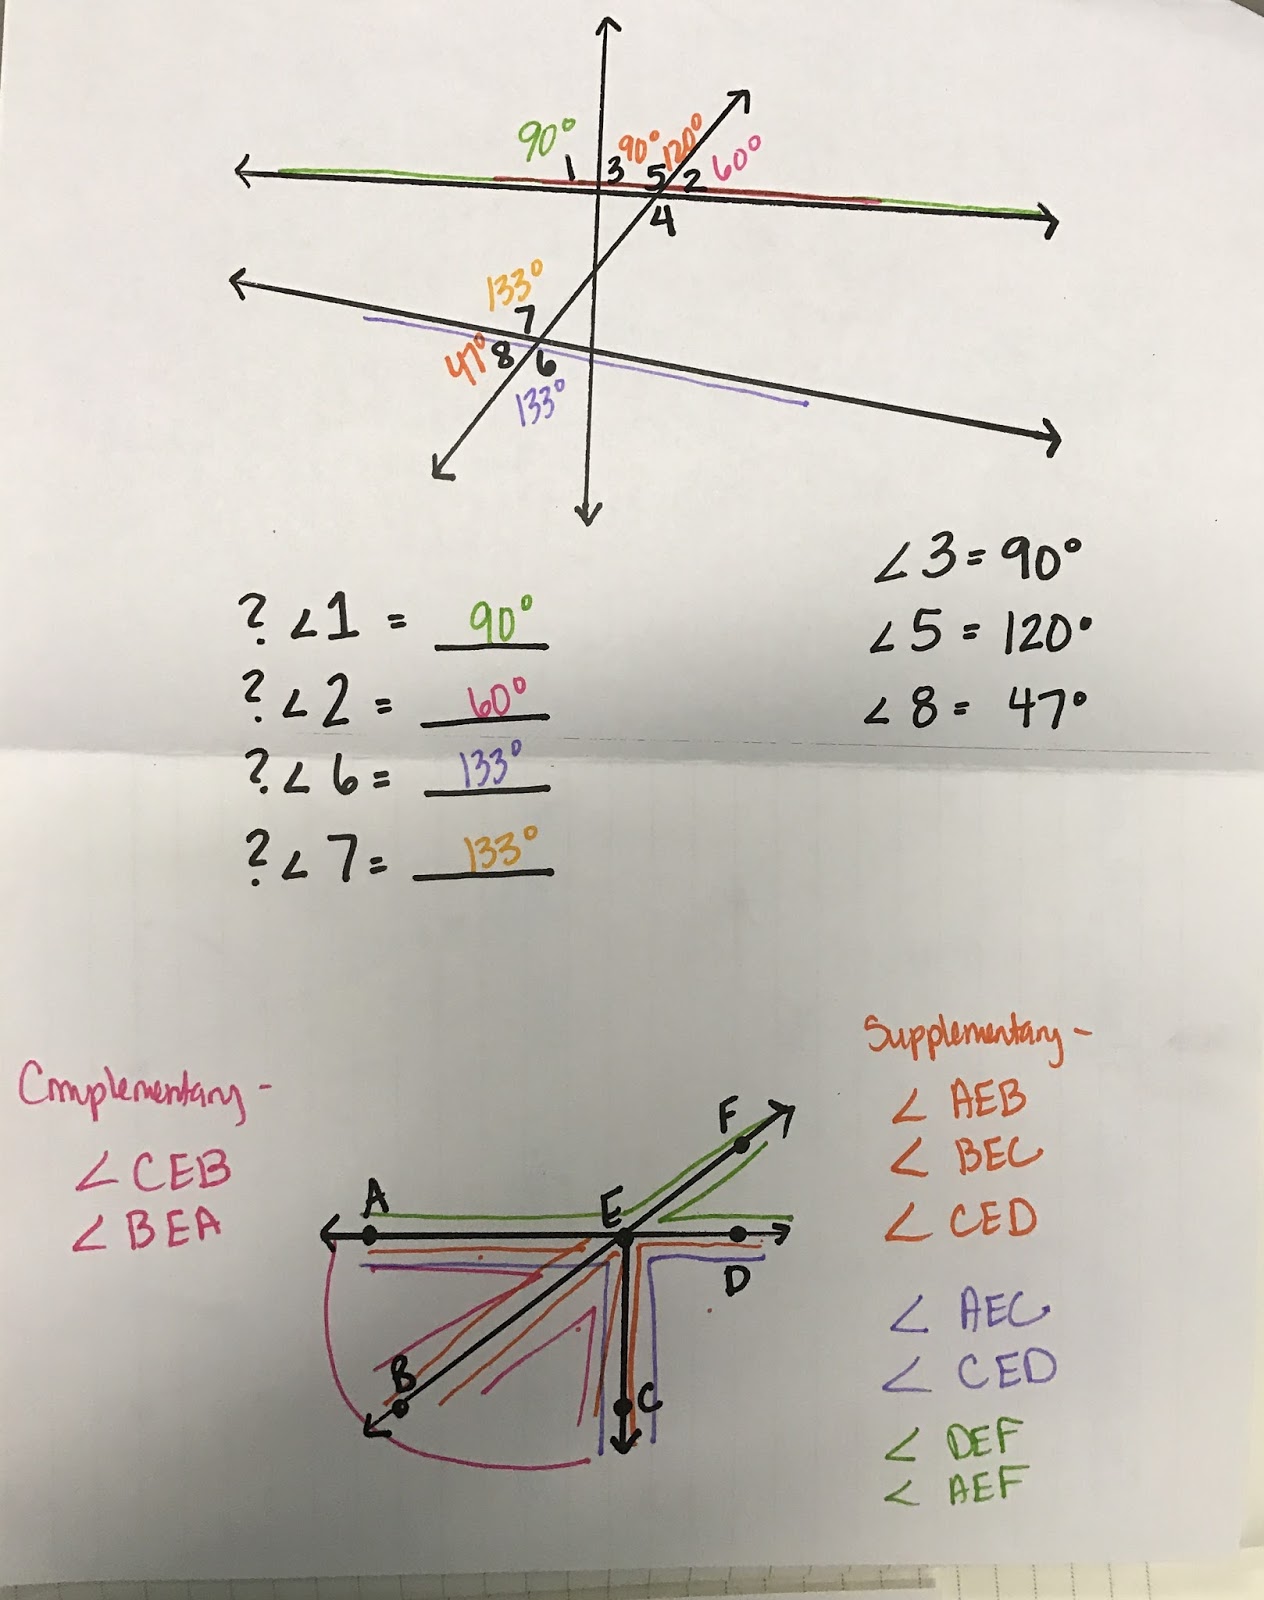 90°
90°
120°
60°
1
3
5
2
4
133°
7
47°
8
6
133°
∠3 = 90°
∠5 = 120°
∠8 = 47°
? ∠1 = 90°
? ∠2 = 60°
? ∠6 = 133°
? ∠7 = 133°
Complementary -
∠CEB
∠BEA
A
E
F
D
B
C
Supplementary -
∠ AEB
∠ BEC
∠ CED
∠ AEC
∠ CED
∠ DEF
∠ AEF